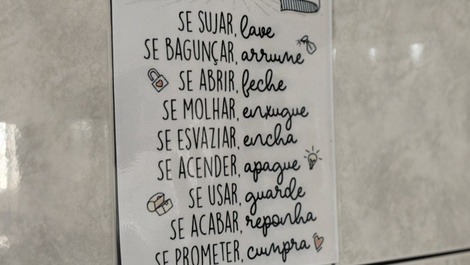 SE SUJAR, lave
SE BAGUNÇAR, arrume
SE ABRIR, feche
SE MOLHAR, enxugue
SE ESVAZIAR, encha
SE ACENDER, apague
SE USAR, guarde
SE ACABAR, reponha
SE PROMETER, cumpra